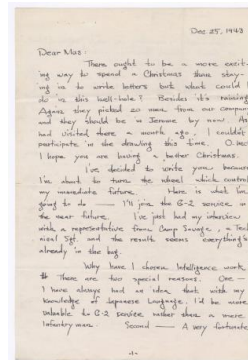 Dec 25, 1943
Dear Mas:
There ought to be a more excit-
ing way to spend a Christmas than stay-
ing in to write letters but what could I
do in this hell-hole! Besides it's raining
Again they picked 20 men from our company
and they should be in Jerome by now. As
had visited there a month ago, I couldn't
participate in the drawing this time.
I hope you are having a better Christmas.
I've decided to write you, because
I'm about to turn the wheel which control
my immediate future. Here is what I'm
going to do — I'll join the G-2 service in
the near future. I've just had my interview
with a representative from Camp Savage, a Tech
nical Sgt. and the results seem everything's
already in the bag.
Why have I chosen Intelligence work
There are two special reasons. One —
I have always had an idea that with my
knowledge of Japanese Language, I'd be more
valuable to G-2 service rather than a mere
infantryman. Second — A very fortunate
-1-